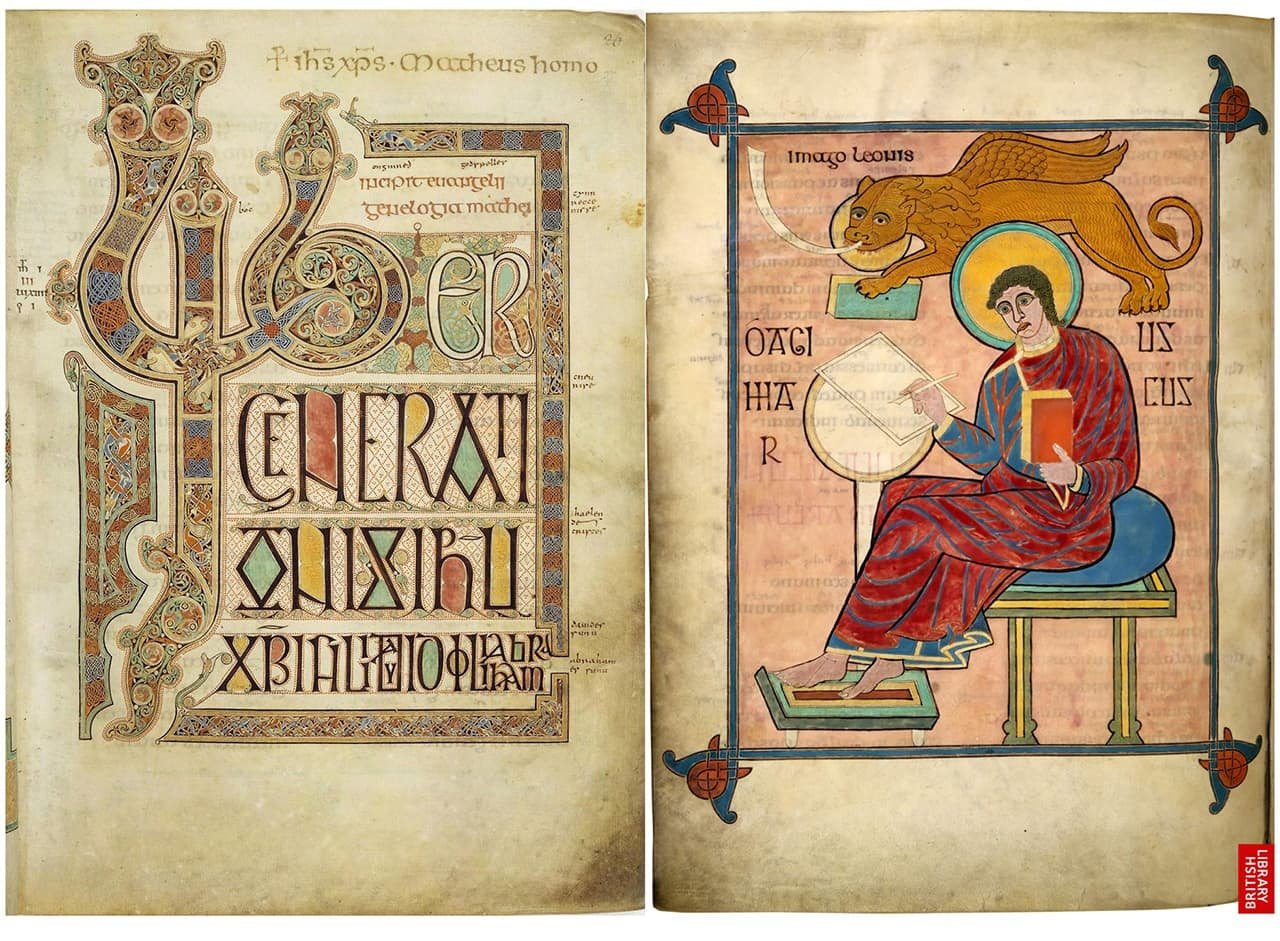 + ihs xps · Matheus homo
incipit euangelii
genelogia mathei
LIBER
GENERATI
ONIS IHU
XPI FILII DAVID FILII ABRAHAM
imago leonis
O AGI US
MA CUS
R
BRITISH
LIBRARY